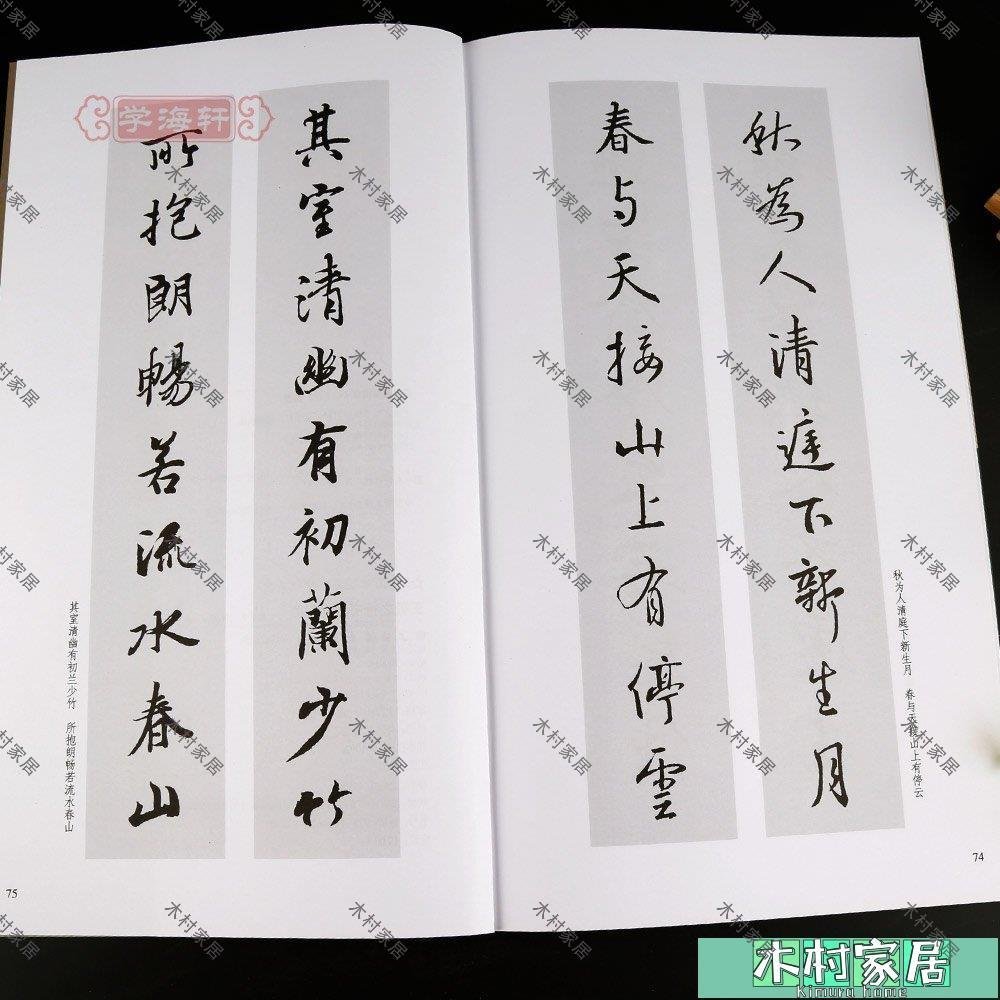 秋為人清庭下新生月
春与天接山上有停雲
秋为人清庭下新生月 春与天接山上有停云
74
其室清幽有初蘭少竹
所抱朗暢若流水春山
其室清幽有初兰少竹 所抱朗畅若流水春山
75
学海轩
木村家居
Kimura home